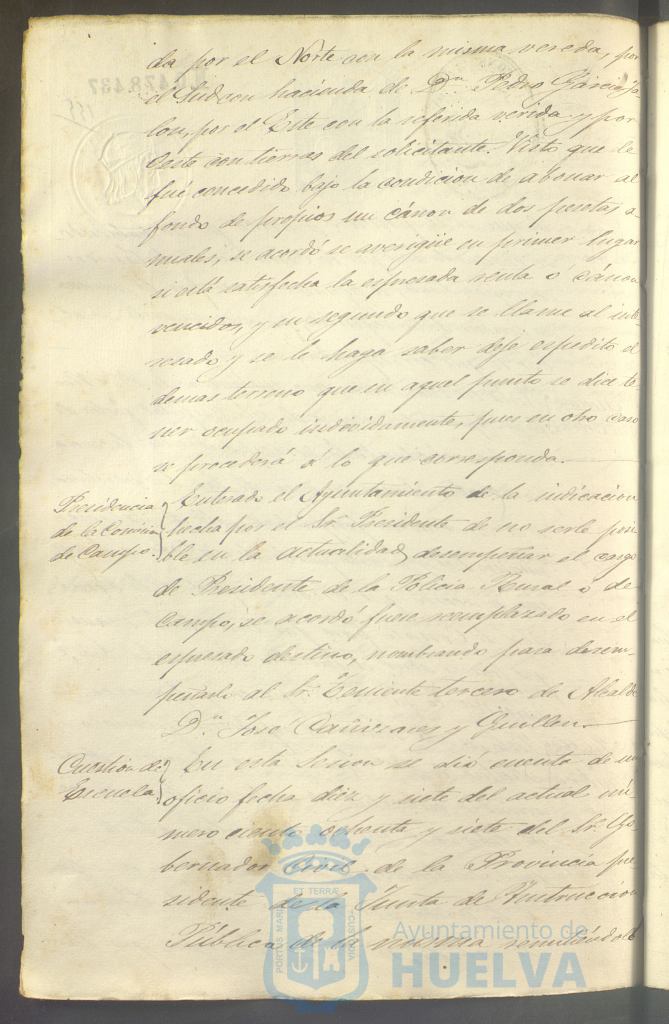 da por el Norte con la misma vereda, por
el Sud con hacienda de D.n Pedro Garcia Ja-
lon, por el Este con la referida verida y por
Oeste con tierras del solicitante. Visto que le
fué concedido bajo la condicion de abonar al
fondo de propios un cánon de dos pesetas a-
nuales, se acordó se averigüe en primer lugar
si está satisfecha la espresada renta o cánon
vencidos, y en segundo que se llame al inte-
resado y se le haga saber deje espedito el
demas terreno que en aquel punto se dice te-
ner ocupado indevidamente, pues en otro caso
se procederá á lo que corresponda.
Presidencia
de la Comision
de Campo.
Enterado el Ayuntamiento de la indicacion
hecha por el Sr. Presidente de no serle posi-
ble en la actualidad desempeñar el cargo
de Presidente de la Policia Rural o de
Campo, se acordó fuese reemplazado en el
espresado destino, nombrando para desem-
peñarlo al Sr. Teniente tercero de Alcalde
D.n José Cañizares y Guillen.
Cuestion de
Escuela
En esta Sesion se dió cuenta de un
oficio fecha diez y siete del actual nú-
mero ciento ochenta y siete del Sr. Go-
bernador Civil de la Provincia pre-
sidente de la Junta de Instruccion
Pública de la misma remitiéndole
PORTUS MARIS ET TERRÆ CUSTODIA
Ayuntamiento de
HUELVA